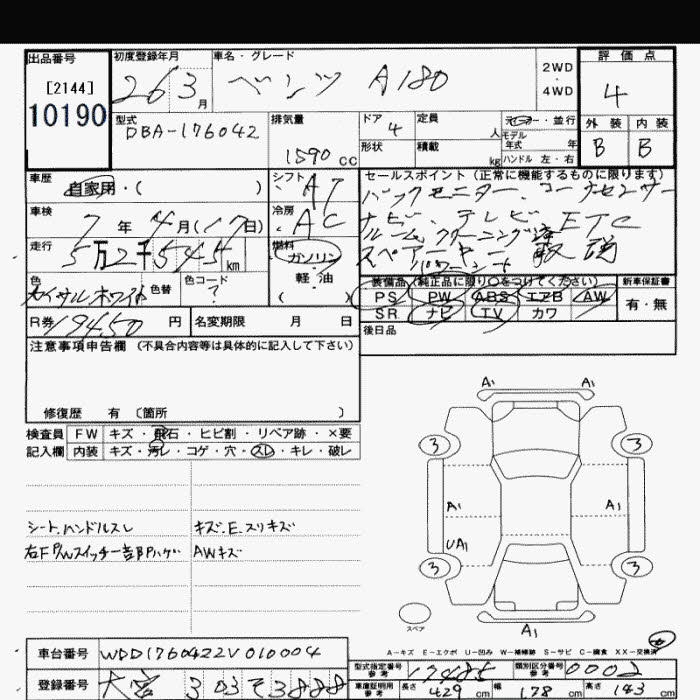 出品番号 初度登録年月 車名・グレード 評価点
[2144] 26 3月 ベンツ A180 2WD・4WD 4
10190
型式 DBA-176042 排気量 1590 cc ドア 4 定員 人 元ディーラー・並行 外装 内装
形状 積載 kg モデル年式 年 B B
ハンドル 左・右
車歴 自家用・( ) シフト AT セールスポイント(正常に機能するものに限ります)
バックモニター、コーナーセンサー
車検 7年4月(17日) 冷房 AC ナビ、テレビ、ETC
ルームクリーニング済
走行 5万2千545km 燃料 ガソリン スペアキー
軽・油
( )
色 色替 色コード ?
装備品(純正品に限り○をつけてください) 新車保証書
PS PW ABS エアB AW 有・無
SR ナビ TV カワ
R券 19450円 名変期限 月 日 後日品
注意事項申告欄(不具合内容等は具体的に記入して下さい)
修復歴 有〔箇所 〕
A1 A1
検査員 FW キズ・飛石・ヒビ割・リペア跡・×要
記入欄 内装 キズ・汚レ・コゲ・穴・スレ・キレ・破レ
3 3
A1 A1
シート、ハンドルスレ キズ、E、スリキズ
UA1
右F P/Wスイッチ一部Pハゲ AWキズ
3 3
スペア
A1
A-キズ E-エクボ U-凹み W-補修跡 S-サビ C-腐食 XX-交換済
車台番号 WDD1760422V010004
型式指定番号 参考 17485 類別区分番号 参考 0002
登録番号 大宮 303 そ 3888
車庫証明用 参考 長さ 429 cm 幅 178 cm 高さ 143 cm